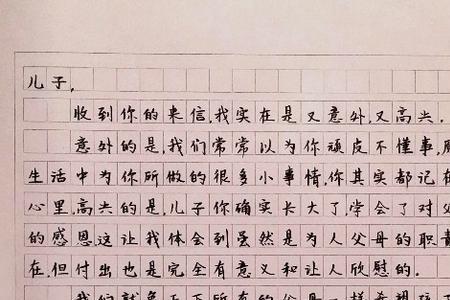 儿子,
收到你的来信,我实在是又意外,又高兴.
意外的是,我们常常以为你顽皮不懂事,
生活中为你所做的很多小事情,你其实都记在
心里,高兴的是,儿子你确实长大了,学会了对父
的感恩.这让我体会到虽然是为人父母的职责
在,但付出也是完全有意义和让人欣慰的.